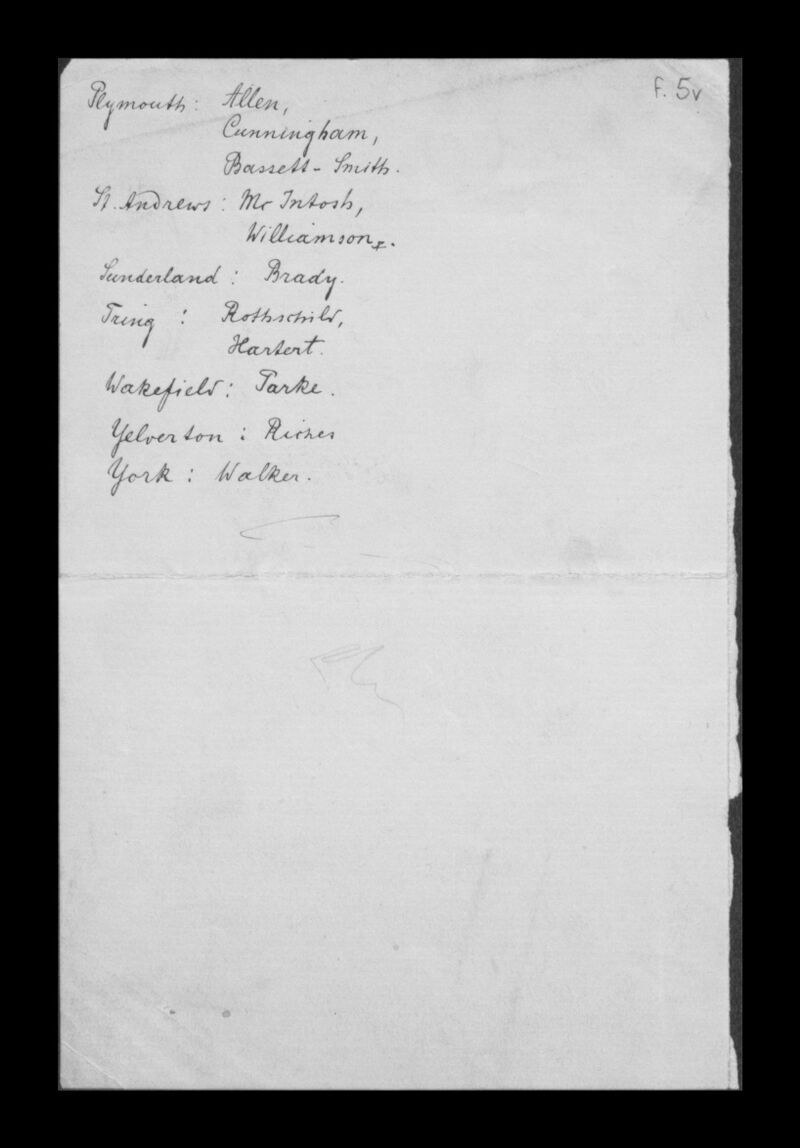 f. 5v
Plymouth: Allen,
Cunningham,
Bassett-Smith.
St. Andrews: Mc Intosh,
Williamson.
Sunderland: Brady.
Tring: Rothschild,
Hartert.
Wakefield: Parke.
Yelverton: Riches
York: Walker.